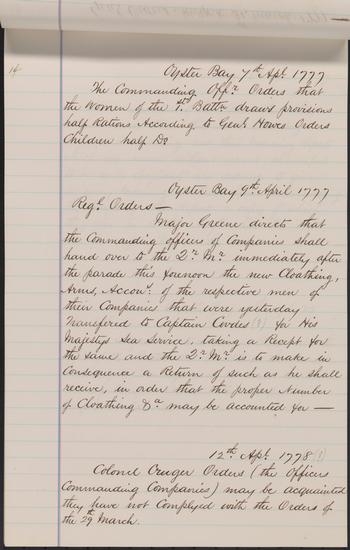 14
Oyster Bay 7th Apl. 1777
The Commanding Offr. Orders that
the Women of the 1st. Battn draws provisions
half Rations According to Genl. Howes Orders
Children half Do
Oyster Bay 9th April 1777
Regl. Orders—
Major Greene directs that
the Commanding officers of Companies shall
hand over to the Qr. Mr. immediately after
the parade this forenoon the new Cloathing,
Arms, Accout. of the respective men of
their Companies that were yesterday
Transfered to Captain Coveles (?) for His
Majestys Sea Service. taking a Recept for
the same and the Qr. Mr. is to make in
Consequence a Return of such as he shall
receive, in order that the proper Number
of Cloathing &a may be accounted for —
12th. Apl. 1778 (!)
Colonel Cruger Orders (the Officers
Commanding Companies) may be acquainted
they have not Complyed with the Orders of
the 29th March.